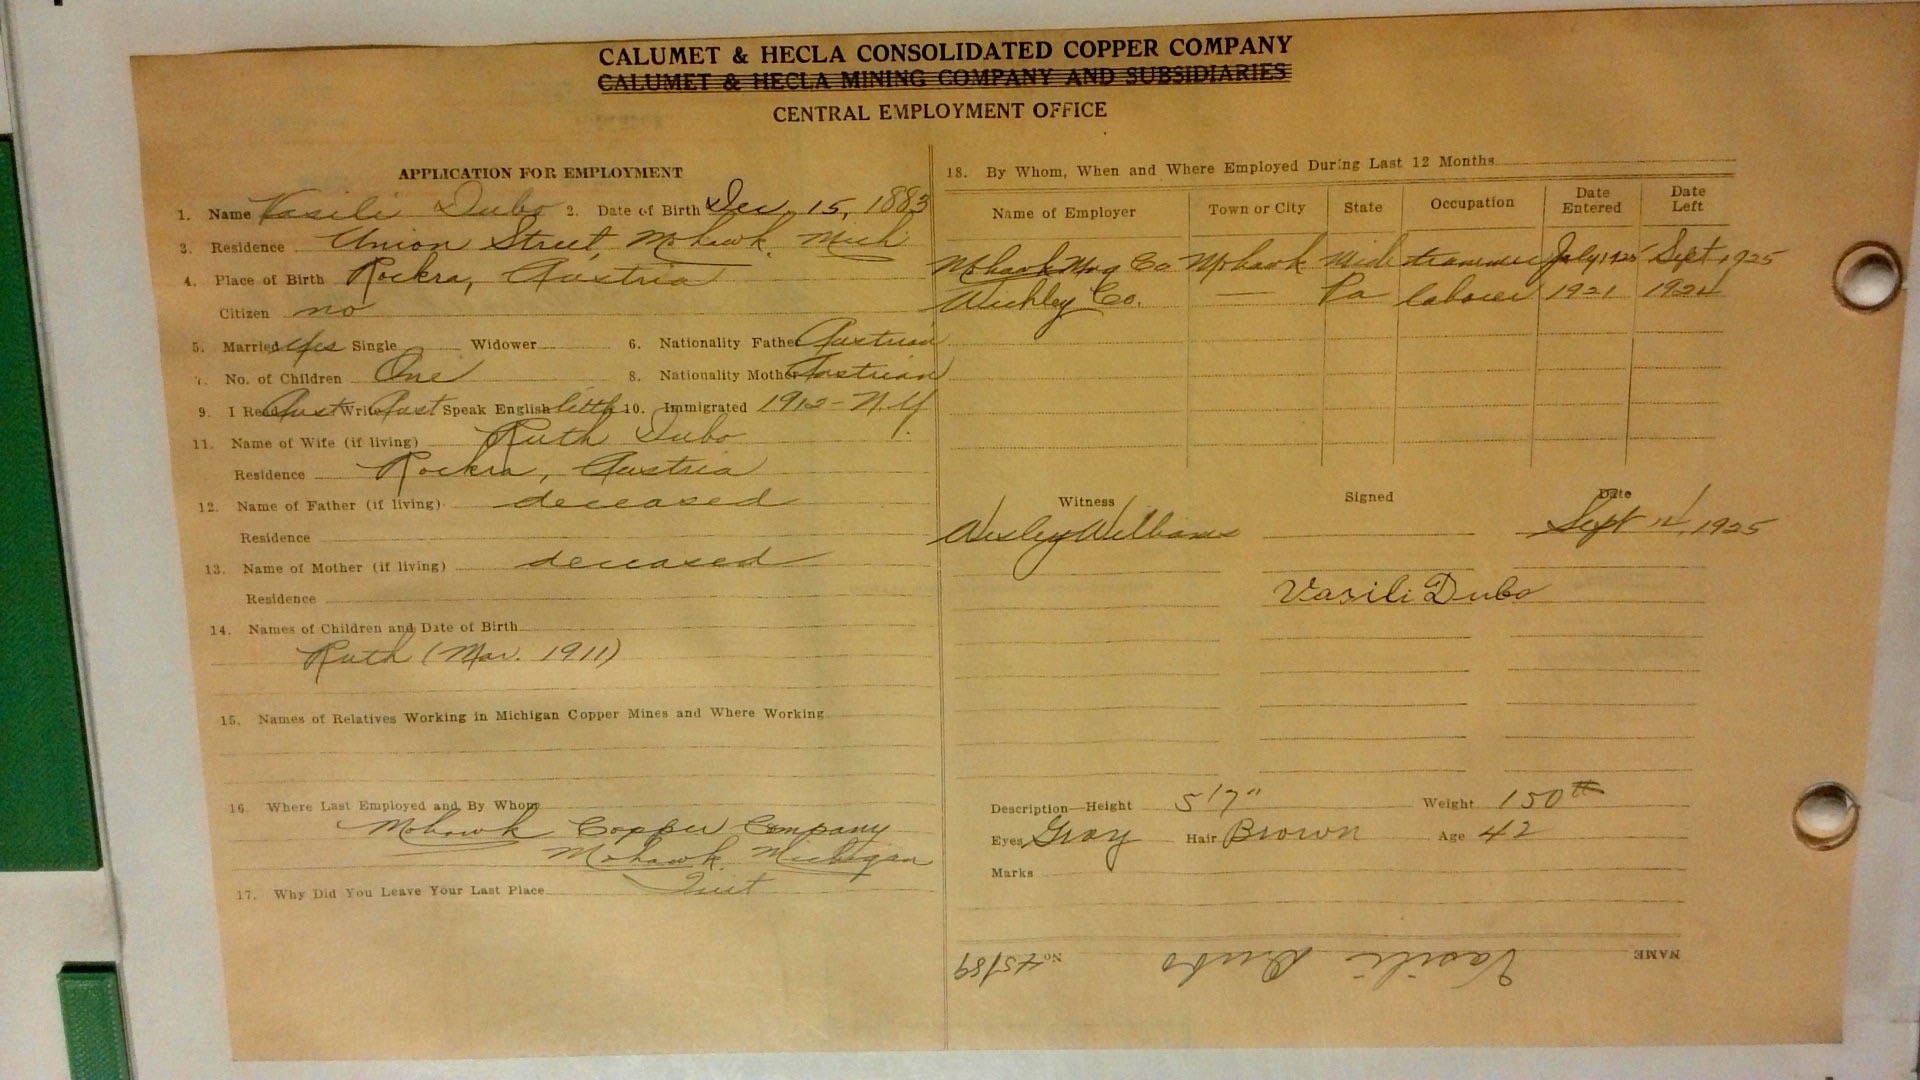 CALUMET & HECLA CONSOLIDATED COPPER COMPANY
CALUMET & HECLA MINING COMPANY AND SUBSIDIARIES
CENTRAL EMPLOYMENT OFFICE
APPLICATION FOR EMPLOYMENT
1. Name Vasili Dubo 2. Date of Birth Dec. 15, 1883
3. Residence Union Street, Mohawk, Mich
4. Place of Birth Rockra, Austria
Citizen no
5. Married Yes Single Widower 6. Nationality Father Austrian
7. No. of Children One 8. Nationality Mother Austrian
9. I Read Aust Write Aust Speak English little 10. Immigrated 1912 - N.Y.
11. Name of Wife (if living) Ruth Dubo
Residence Rockra, Austria
12. Name of Father (if living) deceased
Residence
13. Name of Mother (if living) deceased
Residence
14. Names of Children and Date of Birth
Ruth (Mar. 1911)
15. Names of Relatives Working in Michigan Copper Mines and Where Working
16. Where Last Employed and By Whom
Mohawk Copper Company
Mohawk, Michigan
17. Why Did You Leave Your Last Place Quit
18. By Whom, When and Where Employed During Last 12 Months
Name of Employer Town or City State Occupation Date Entered Date Left
Mohawk Mng Co Mohawk Mich trammer July, 1925 Sept, 1925
Co. — Pa laborer 1921
Witness Signed Date
Wesley Williams Sept 1925
Vasili Dubo
Description—Height 5'7" Weight 150 #
Eyes Gray Hair Brown Age 42
Marks
NAME Vasili Dubo No. 45189